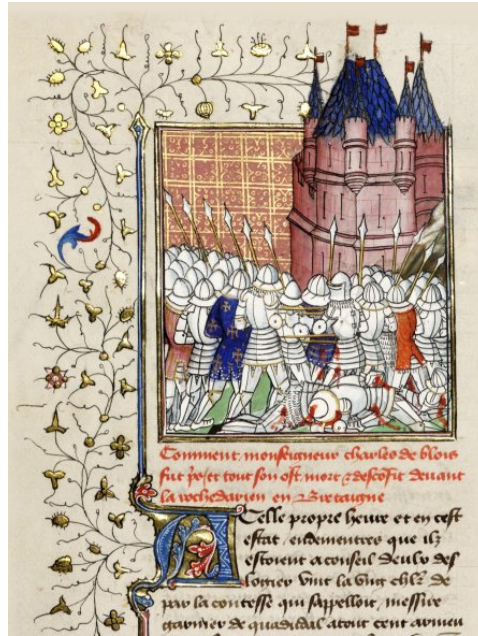 Comment monseigneur charles de blois
fut pris et tout son ost mort & desconfit devant
la rochedarien en Bretaigne
A Celle propre heure et en cest
estat endementres que ilz
estoient a conseil deulx des
logier vint la ung chlr de
par la contesse qui sappelloit messire
garnier de quadudal atout cent armeu